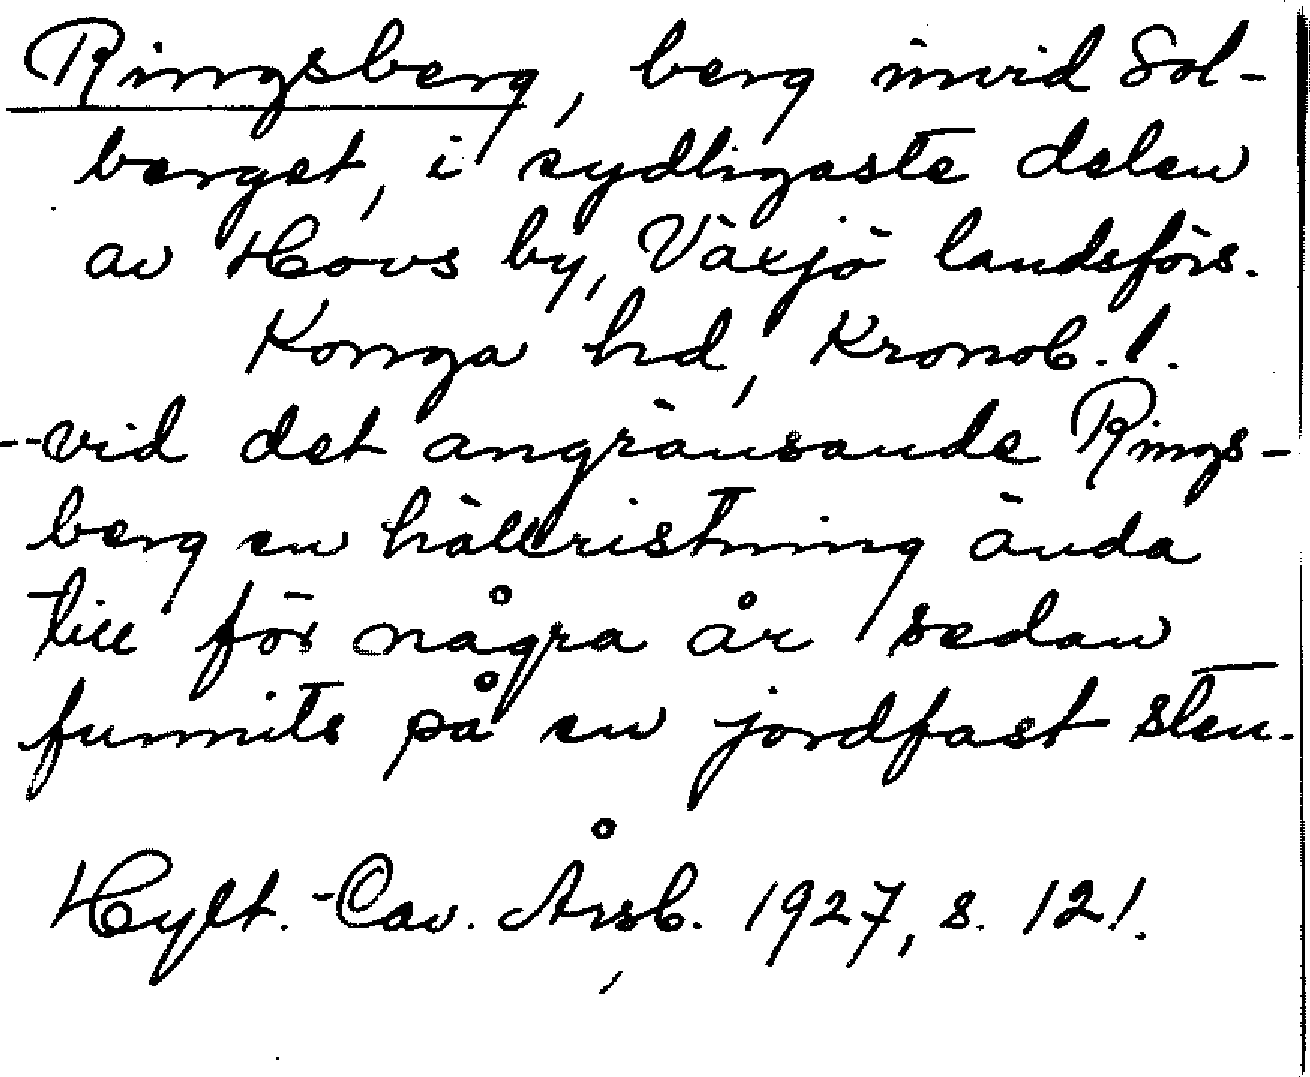 Ringsberg, berg invid Sol-
berget, i sydligaste delen
av Hovs by, Växjö landsförs.
Konga hd, Kronob. l.
--vid det angränsande Rings-
berg en hällristning ända
till för några år sedan
funnits på en jordfast sten.
Hylt.-Cav. Årsb. 1927, s. 121.